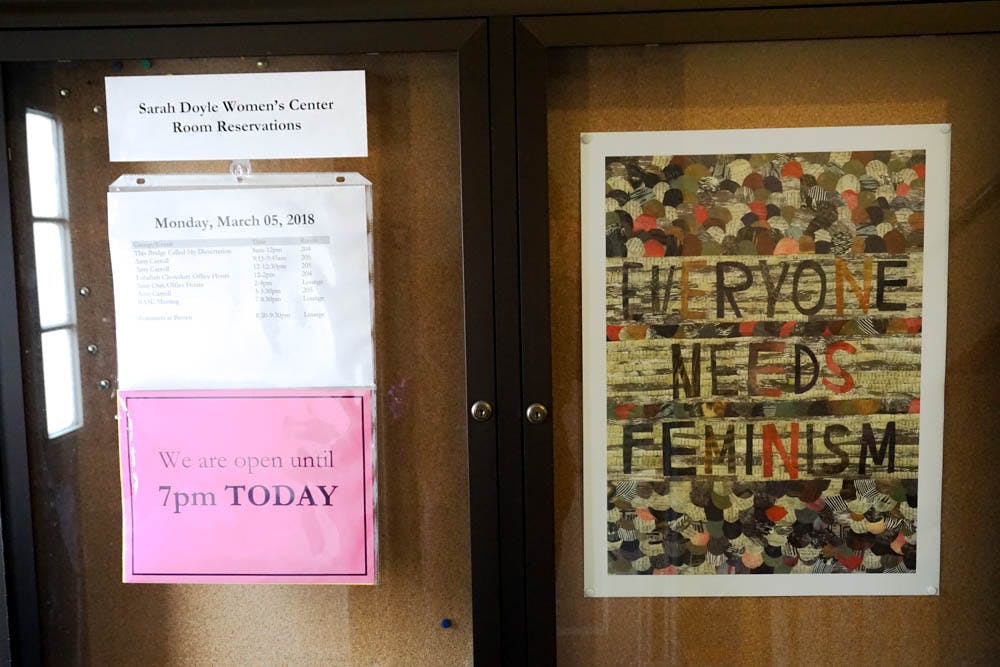 Sarah Doyle Women's Center
Room Reservations
Monday, March 05, 2018
Group/Event Time Room
This Bridge Called My Dissertation 9am-12pm 204
Amy Carroll 9:15-9:45am 205
Amy Carroll 12-12:30pm 205
Chowdury Office Hours 12-2pm 204
Office Hours 2-4pm Lounge
Amy Carroll 205
Meeting 7-8:30pm Lounge
Feminists at Brown 8:30-9:30pm Lounge
We are open until
7pm TODAY
EVERYONE
NEEDS
FEMINISM